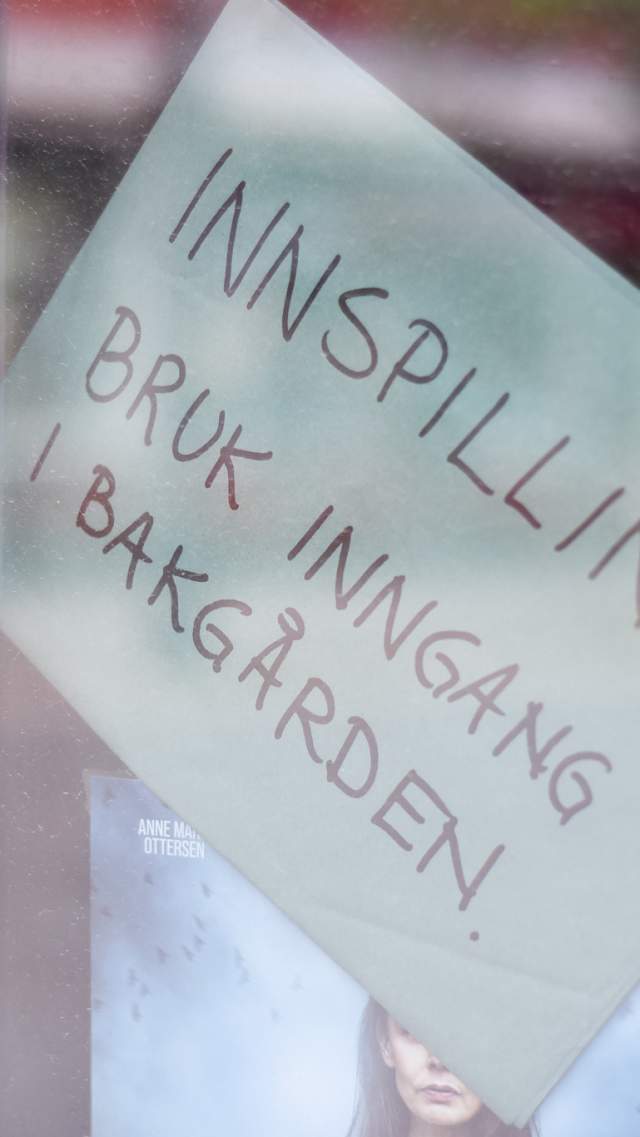 INNSPILLIN
BRUK INNGANG
I BAKGÅRDEN.
ANNE MAR
OTTERSEN